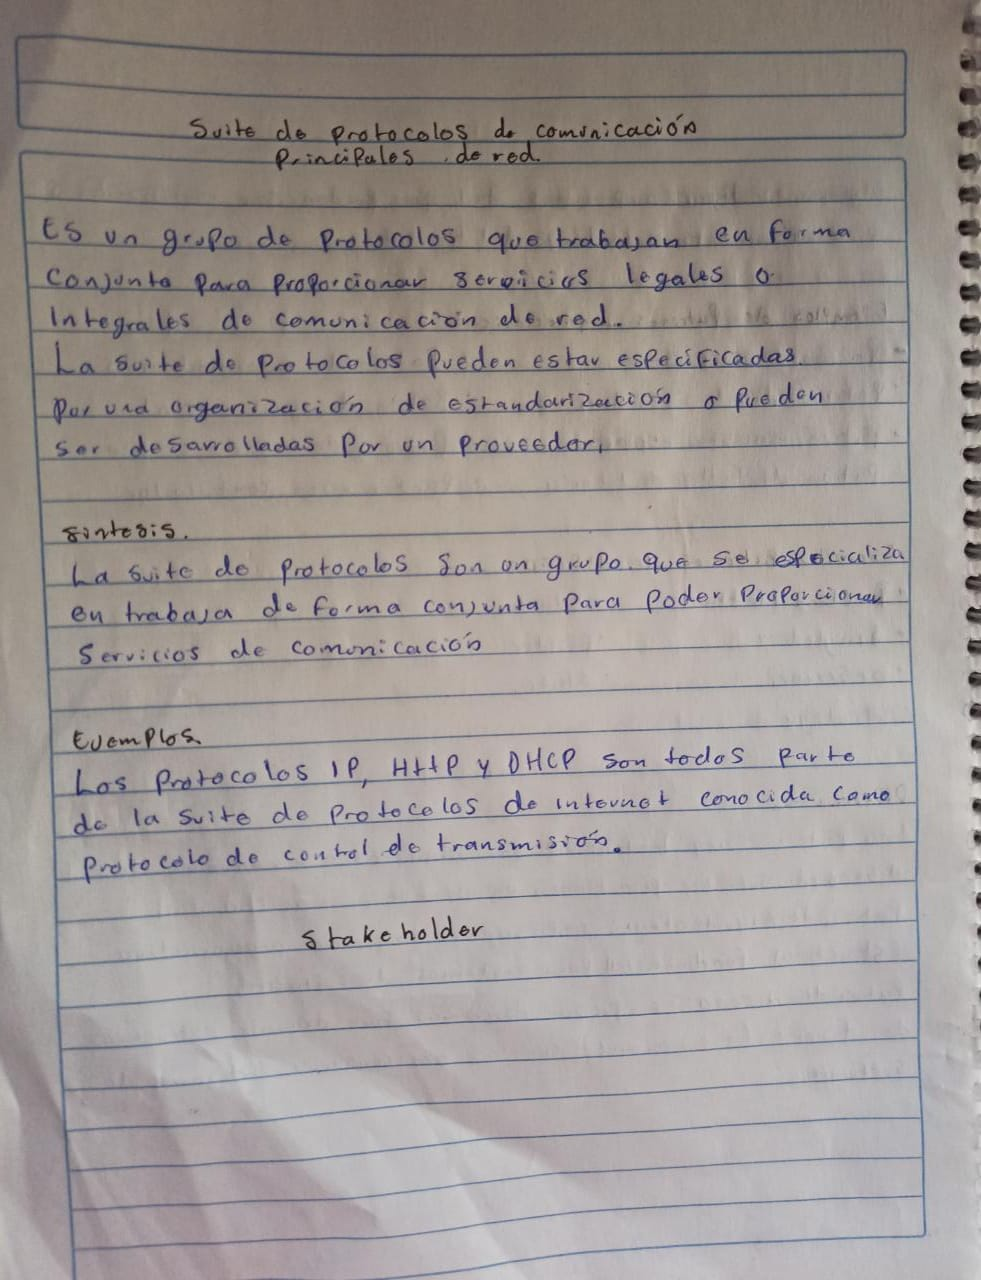 Suite de protocolos de comunicación
Principales de red.
Es un grupo de Protocolos que trabajan en forma
Conjunta para proporcionar servicios legales o
Integrales de comunicación de red.
La suite de protocolos pueden estar especificadas
por una organización de estandarización o pueden
ser desarrolladas por un proveedor,
sintesis.
La suite de protocolos son un grupo que se especializa
en trabaja de forma conjunta para poder proporcionar
servicios de comunicación
Ejemplos
Los protocolos IP, HttP y DHCP son todos parte
de la suite de protocolos de internet conocida como
protocolo de control de transmisión.
Stakeholder